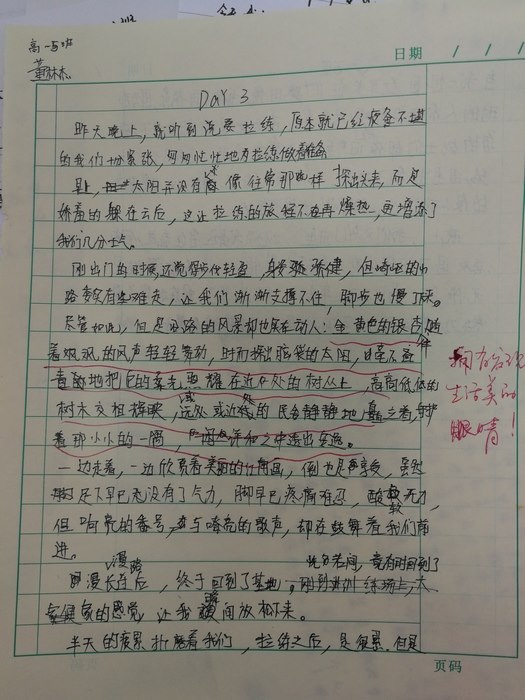 高一5班
日期 / / /
DaY 3
昨天晚上，就听到说要拉练，原本就已经疲惫不堪
的我们十分紧张，匆匆忙忙地为拉练做准备
早上，太阳并没有像往常那样探出头来，而是
娇羞的躲在云后，这让拉练的旅程不再燥热，更增添了
我们几分士气。
刚出门的时候还觉得步伐轻盈，身姿矫健，但崎岖的小
路实有些难走，让我们渐渐支撑不住，脚步也慢下来。
尽管如此，但是沿路的风景却也实在动人：金黄色的银杏随
着飒飒的风声轻轻舞动，时而探出脑袋的太阳，
地把它的柔光照耀在近处的树丛上，高高低低的
树木交相辉映，远处或近处的民舍静静地矗立着，守护
着那小小的一隅，
一边走着，一边欣赏着美丽的，倒也是享受，虽然
足下早已走没有了气力，脚早已疼痛难忍，酸软无力，
但响亮的番号，与嘹亮的歌声，却在鼓舞着我们前
进。
恍兮若间，竟有时回到了
漫长路后，终于回到了基地，
家的感觉，让我瞬间放松下来。
半天的疲累折磨着我们，拉练之后，是很累，但是
拥有发现
生活美的
眼睛！
页码